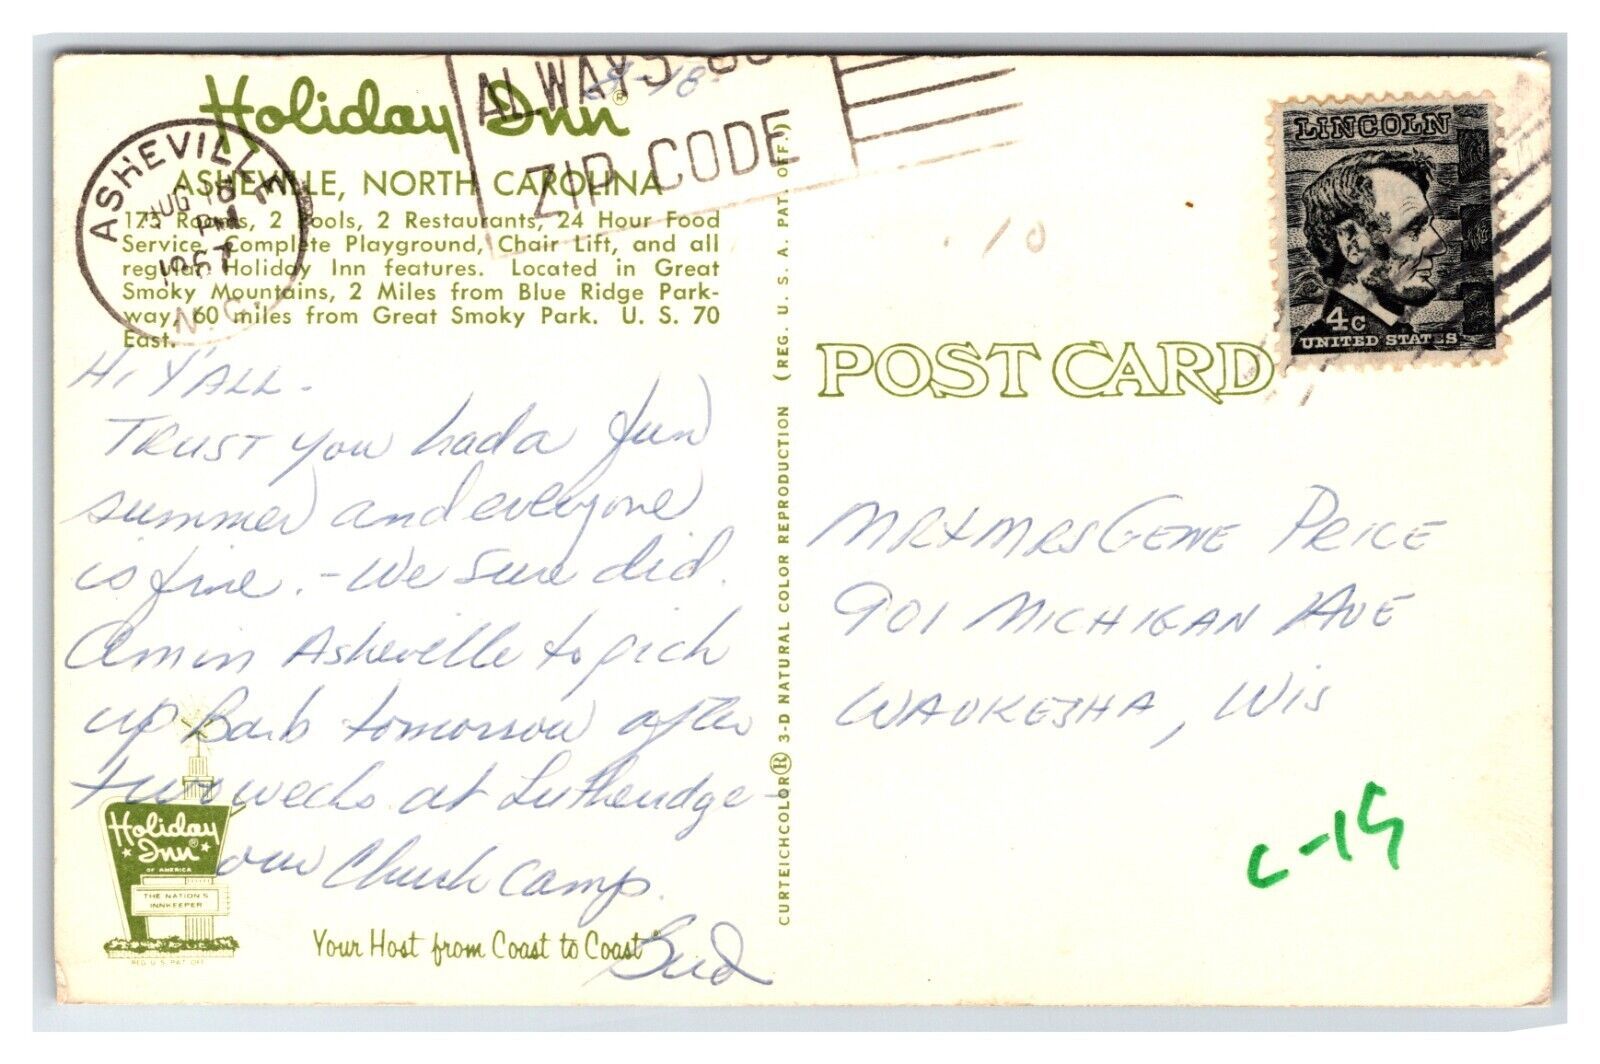 Holiday Inn®
ASHEVILLE, NORTH CAROLINA
175 Rooms, 2 Pools, 2 Restaurants, 24 Hour Food
Service, Complete Playground, Chair Lift, and all
regular Holiday Inn features. Located in Great
Smoky Mountains, 2 Miles from Blue Ridge Park-
way, 60 miles from Great Smoky Park. U. S. 70
East.
ASHEVILLE
AUG 18
PM
1967
N.C.
ALWAYS
ZIP CODE
8-18
Hi Y'ALL -
TRUST you had a fun
summer and everyone
is fine. - We sure did.
Am in Asheville to pick
up Barb tomorrow after
two weeks at Lutheridge -
our Church Camp.
Bud
Holiday
Inn®
OF AMERICA
THE NATION'S
INNKEEPER
REG. U.S. PAT. OFF.
Your Host from Coast to Coast
CURTEICHCOLOR® 3-D NATURAL COLOR REPRODUCTION (REG. U. S. A. PAT. OFF.)
LINCOLN
4c
UNITED STATES
10
POST CARD
MR & MRS GENE PRICE
901 MICHIGAN AVE
WAUKESHA, WIS
C-15